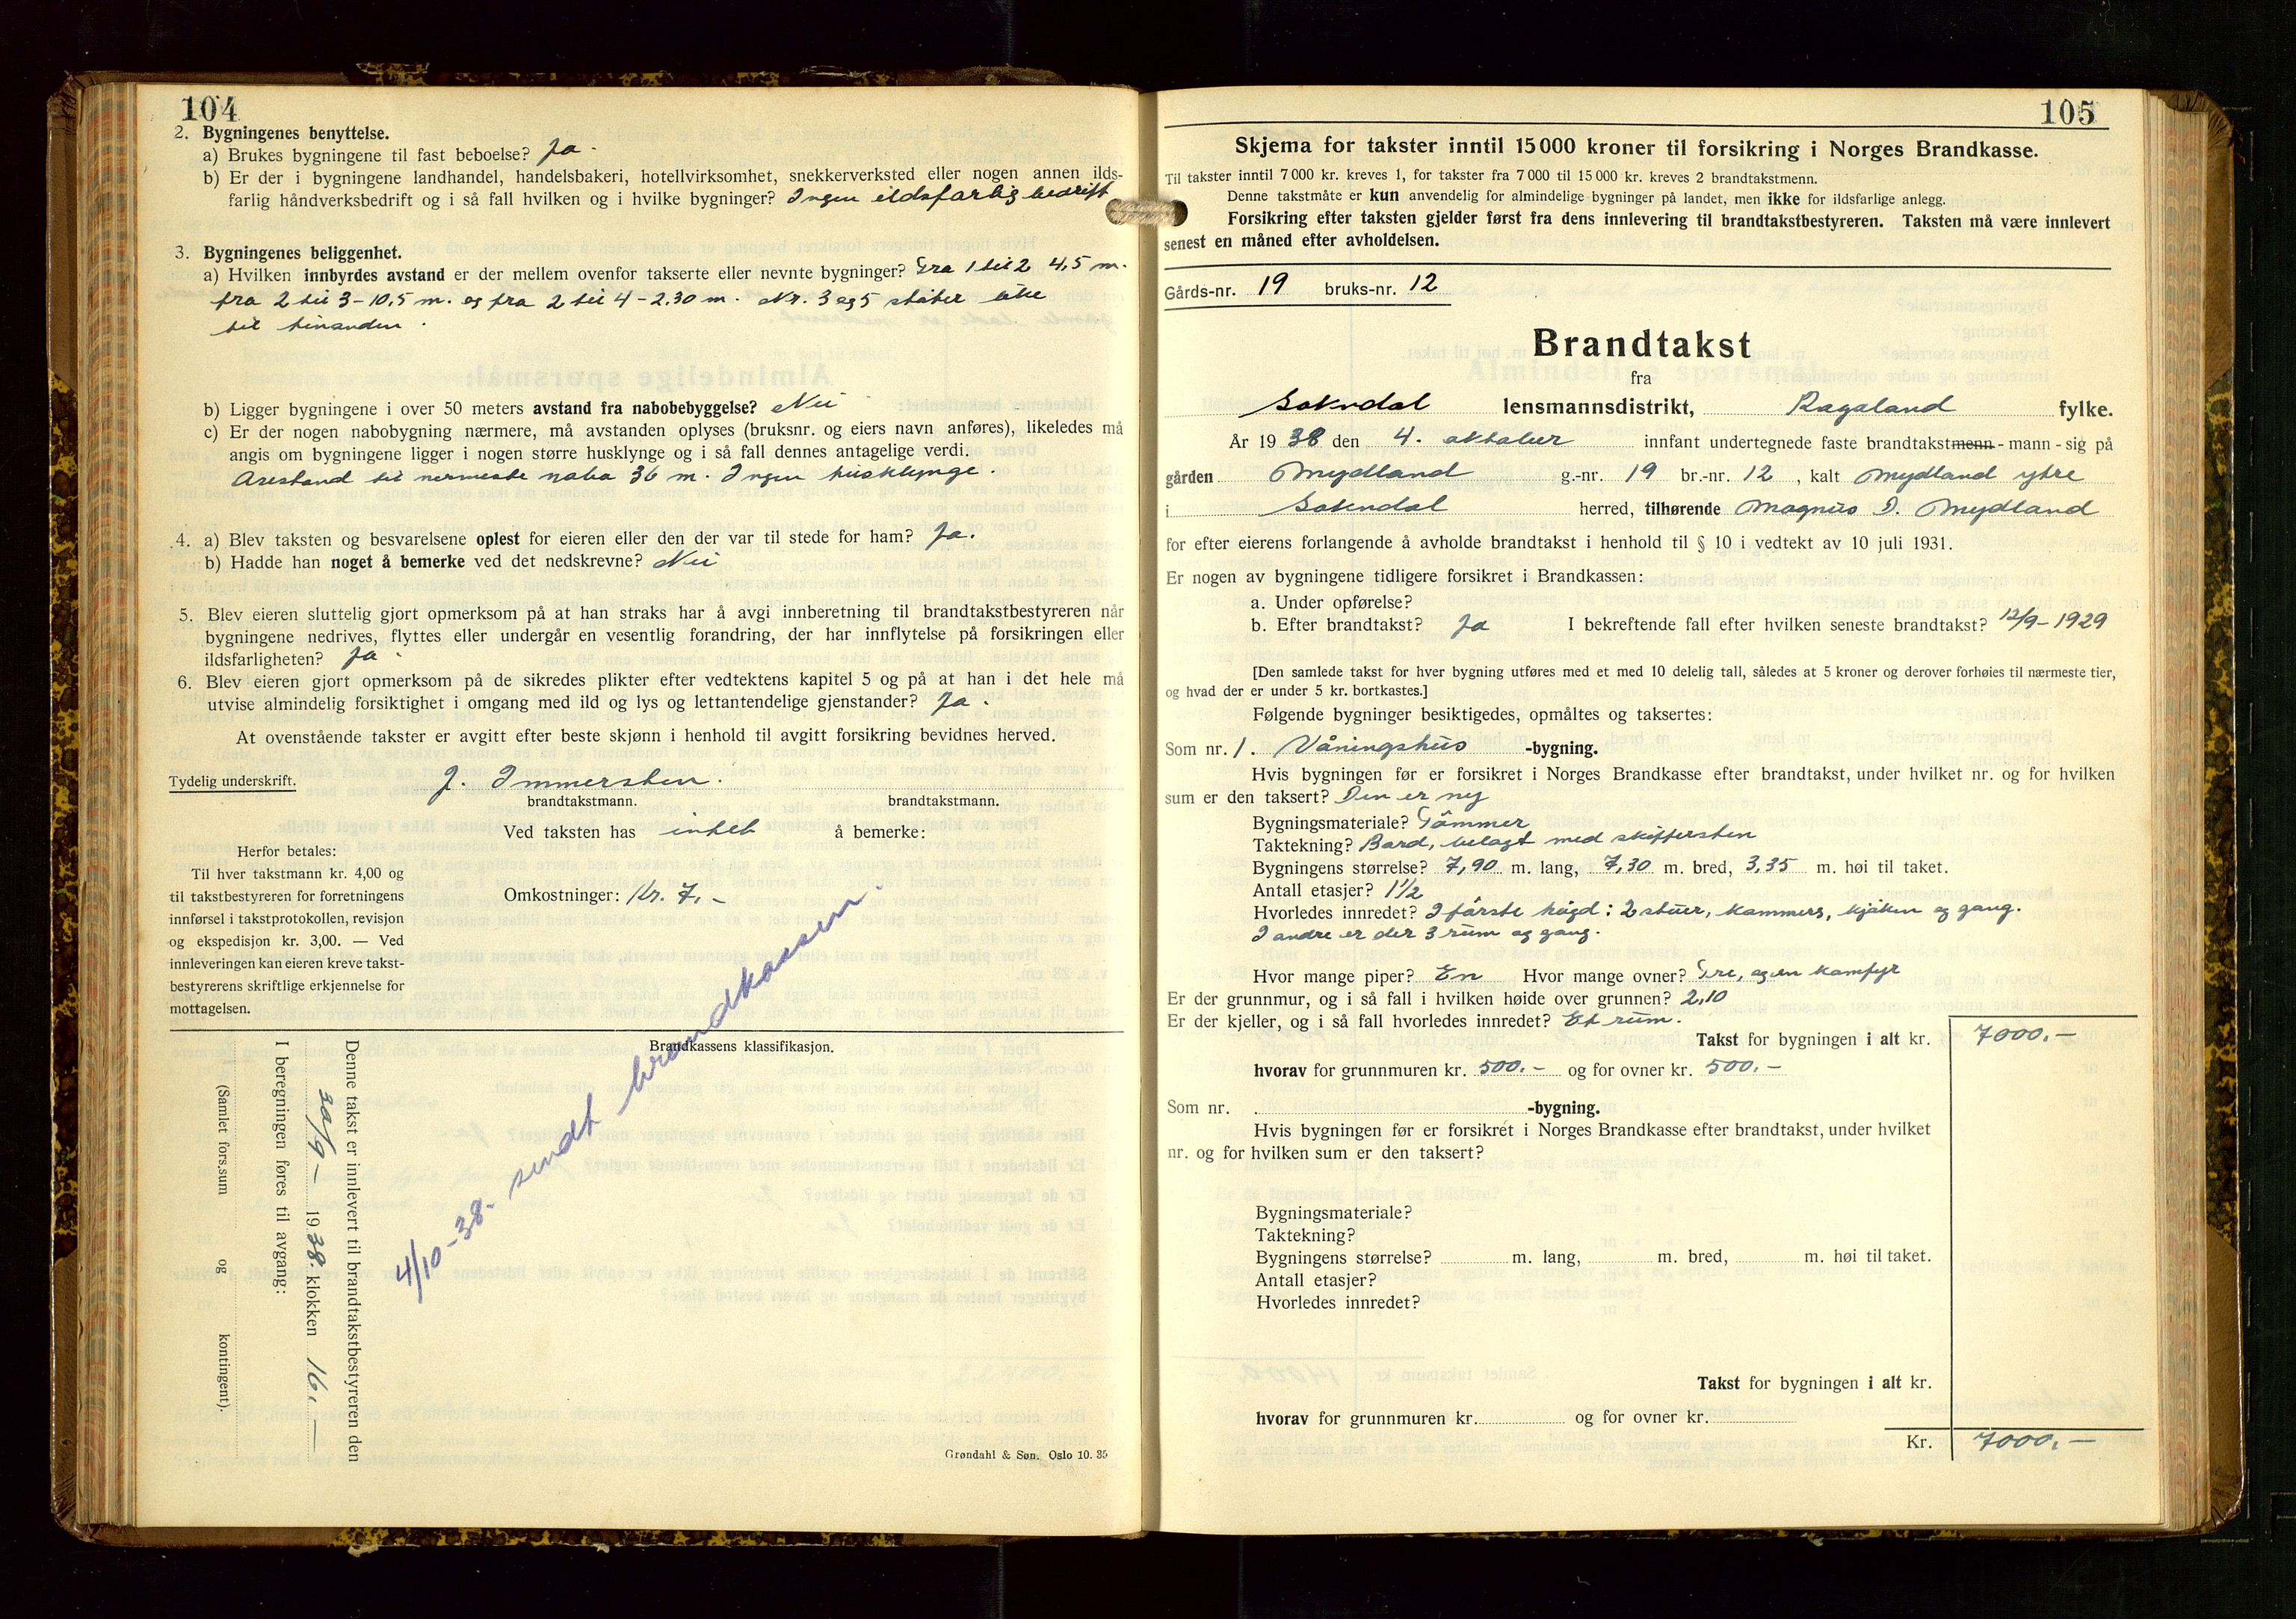 104
2. Bygningenes benyttelse.
a) Brukes bygningene til fast beboelse? Ja.
b) Er der i bygningene landhandel, handelsbakeri, hotellvirksomhet, snekkerverksted eller nogen annen ilds-
farlig håndverksbedrift og i så fall hvilken og i hvilke bygninger? Ingen eldsfarlig bedrift
3. Bygningenes beliggenhet.
a) Hvilken innbyrdes avstand er der mellem ovenfor takserte eller nevnte bygninger? Fra 1 til 2 4,5 m.
fra 2 til 3 - 10,5 m. og fra 2 til 4 - 2.30 m. Nr. 3 og 5 støter like
til hinanden.
b) Ligger bygningene i over 50 meters avstand fra nabobebyggelse? Nei
c) Er der nogen nabobygning nærmere, må avstanden oplyses (bruksnr. og eiers navn anføres), likeledes må
angis om bygningene ligger i nogen større husklynge og i så fall dennes antagelige verdi.
Avstand til nermeste nabo 36 m. Ingen husklynge.
4. a) Blev taksten og besvarelsene oplest for eieren eller den der var til stede for ham? Ja.
b) Hadde han noget å bemerke ved det nedskrevne? Nei
5. Blev eieren sluttelig gjort opmerksom på at han straks har å avgi innberetning til brandtakstbestyreren når
bygningene nedrives, flyttes eller undergår en vesentlig forandring, der har innflytelse på forsikringen eller
ildsfarligheten? Ja.
6. Blev eieren gjort opmerksom på de sikredes plikter efter vedtektens kapitel 5 og på at han i det hele må
utvise almindelig forsiktighet i omgang med ild og lys og lettantendelige gjenstander? Ja.
At ovenstående takster er avgitt efter beste skjønn i henhold til avgitt forsikring bevidnes herved.
Tydelig underskrift. J. Immerslen
brandtakstmann. brandtakstmann.
Ved taksten has intet å bemerke:
Herfor betales:
Til hver takstmann kr. 4,00 og
til takstbestyreren for forretningens
innførsel i takstprotokollen, revisjon
og ekspedisjon kr. 3,00. — Ved
innleveringen kan eieren kreve takst-
bestyrerens skriftlige erkjennelse for
mottagelsen.
Omkostninger: Kr. 7.-
4/10-38. sendt brandkassen
Brandkassens klassifikasjon.
Denne takst er innlevert til brandtakstbestyreren den
30/9- 1938. klokken 16.—
I beregningen føres til avgang:
(Samlet fors.sum og kontingent).
Grøndahl & Søn, Oslo 10. 35
105
Skjema for takster inntil 15 000 kroner til forsikring i Norges Brandkasse.
Til takster inntil 7 000 kr. kreves 1, for takster fra 7 000 til 15 000 kr. kreves 2 brandtakstmenn.
Denne takstmåte er kun anvendelig for almindelige bygninger på landet, men ikke for ildsfarlige anlegg.
Forsikring efter taksten gjelder først fra dens innlevering til brandtakstbestyreren. Taksten må være innlevert
senest en måned efter avholdelsen.
Gårds-nr. 19 bruks-nr. 12
Brandtakst
fra
Sokndal lensmannsdistrikt, Rogaland fylke.
År 1938 den 4. oktober innfant undertegnede faste brandtakstmenn - mann - sig på
gården Mydland g.-nr. 19 br.-nr. 12, kalt Mydland ytre
i Sokndal herred, tilhørende Magnus D. Mydland
for efter eierens forlangende å avholde brandtakst i henhold til § 10 i vedtekt av 10 juli 1931.
Er nogen av bygningene tidligere forsikret i Brandkassen:
a. Under opførelse?
b. Efter brandtakst? Ja I bekreftende fall efter hvilken seneste brandtakst? 12/9-1929
[Den samlede takst for hver bygning utføres med et med 10 delelig tall, således at 5 kroner og derover forhøies til nærmeste tier,
og hvad der er under 5 kr. bortkastes.]
Følgende bygninger besiktigedes, opmåltes og taksertes:
Som nr. 1. Våningshus -bygning.
Hvis bygningen før er forsikret i Norges Brandkasse efter brandtakst, under hvilket nr. og for hvilken
sum er den taksert? Den er ny
Bygningsmateriale? Tømmer
Taktekning? Bord, belagt med skiffersten
Bygningens størrelse? 7,90 m. lang, 7,30 m. bred, 3,35 m. høi til taket.
Antall etasjer? 1 1/2
Hvorledes innredet? I første høgd: 2 stuer, kammers, kjøken og gang.
I andre er der 3 rum og gang.
Hvor mange piper? En Hvor mange ovner? Tre, og en komfyr
Er der grunnmur, og i så fall i hvilken høide over grunnen? 2,10
Er der kjeller, og i så fall hvorledes innredet? Et rum.
Takst for bygningen i alt kr. 7000.-
hvorav for grunnmuren kr. 500.- og for ovner kr. 500.-
Som nr. -bygning.
Hvis bygningen før er forsikret i Norges Brandkasse efter brandtakst, under hvilket
nr. og for hvilken sum er den taksert?
Bygningsmateriale?
Taktekning?
Bygningens størrelse? m. lang, m. bred, m. høi til taket.
Antall etasjer?
Hvorledes innredet?
Takst for bygningen i alt kr.
hvorav for grunnmuren kr. og for ovner kr.
Kr. 7000.-